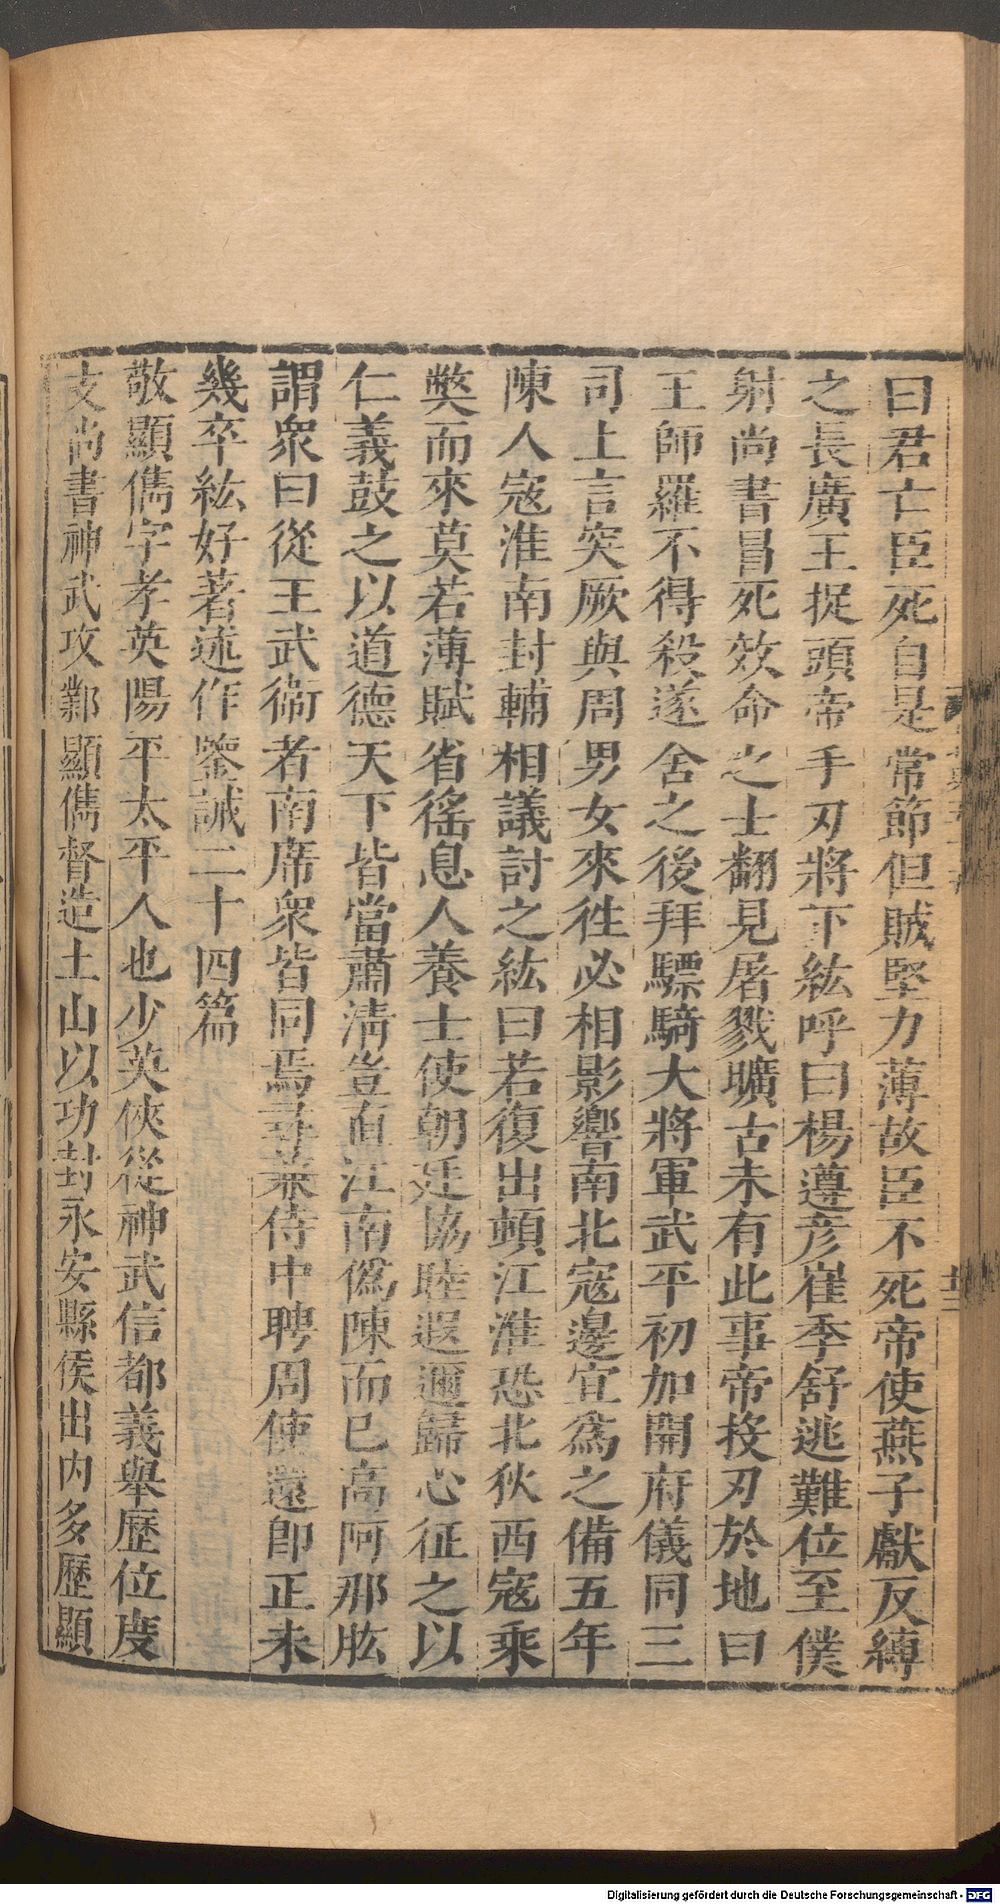 曰君亡臣死自是常節但賊堅力薄故臣不死帝使燕子獻反縛
之長廣王捉頭帝手刃將下紘呼曰楊遵彥崔季舒逃難位至僕
射尚書冒死效命之士翻見屠戮曠古未有此事帝投刃於地曰
王師羅不得殺遂舍之後拜驃騎大將軍武平初加開府儀同三
司上言突厥與周男女來徃必相影響南北寇邊宜爲之備五年
陳人寇淮南封輔相議討之紘曰若復出頓江淮恐北狄西寇乘
獘而來莫若薄賦省徭息人養士使朝廷協睦遐邇歸心征之以
仁義鼓之以道德天下皆當肅淸豈直江南僞陳而巳高阿那肱
謂衆曰從王武衞者南席衆皆同焉尋兼侍中聘周使還即正未
幾卒紘好著述作鑒誡二十四篇
敬顯儁字孝英陽平太平人也少英俠從神武信都義舉歷位度
支尚書神武攻鄴顯儁督造土山以功封永安縣侯出内多歷顯
Digitalisierung gefördert durch die Deutsche Forschungsgemeinschaft - DFG